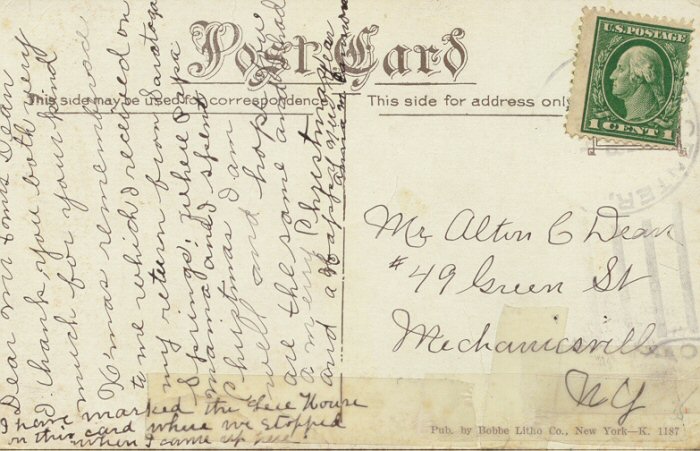 Post Card
This side may be used for correspondence
This side for address only
U.S. POSTAGE
1 CENT 1
Dear Mr & Mrs Dean
I thank you both very
much for your kind
X'mas remembrance
to me which I received on
my return from Saratoga
Springs: where Papa
mama and I spent
Christmas I am
well and hope you
are the same and had
a merry Christmas
and a Happy New Year
Mr Alton C Dean
#49 Green St
Mechanicsville
NY
I have marked the House
on this card where we stopped
when I came up here
Pub. by Bobbe Litho Co., New York—K. 1187